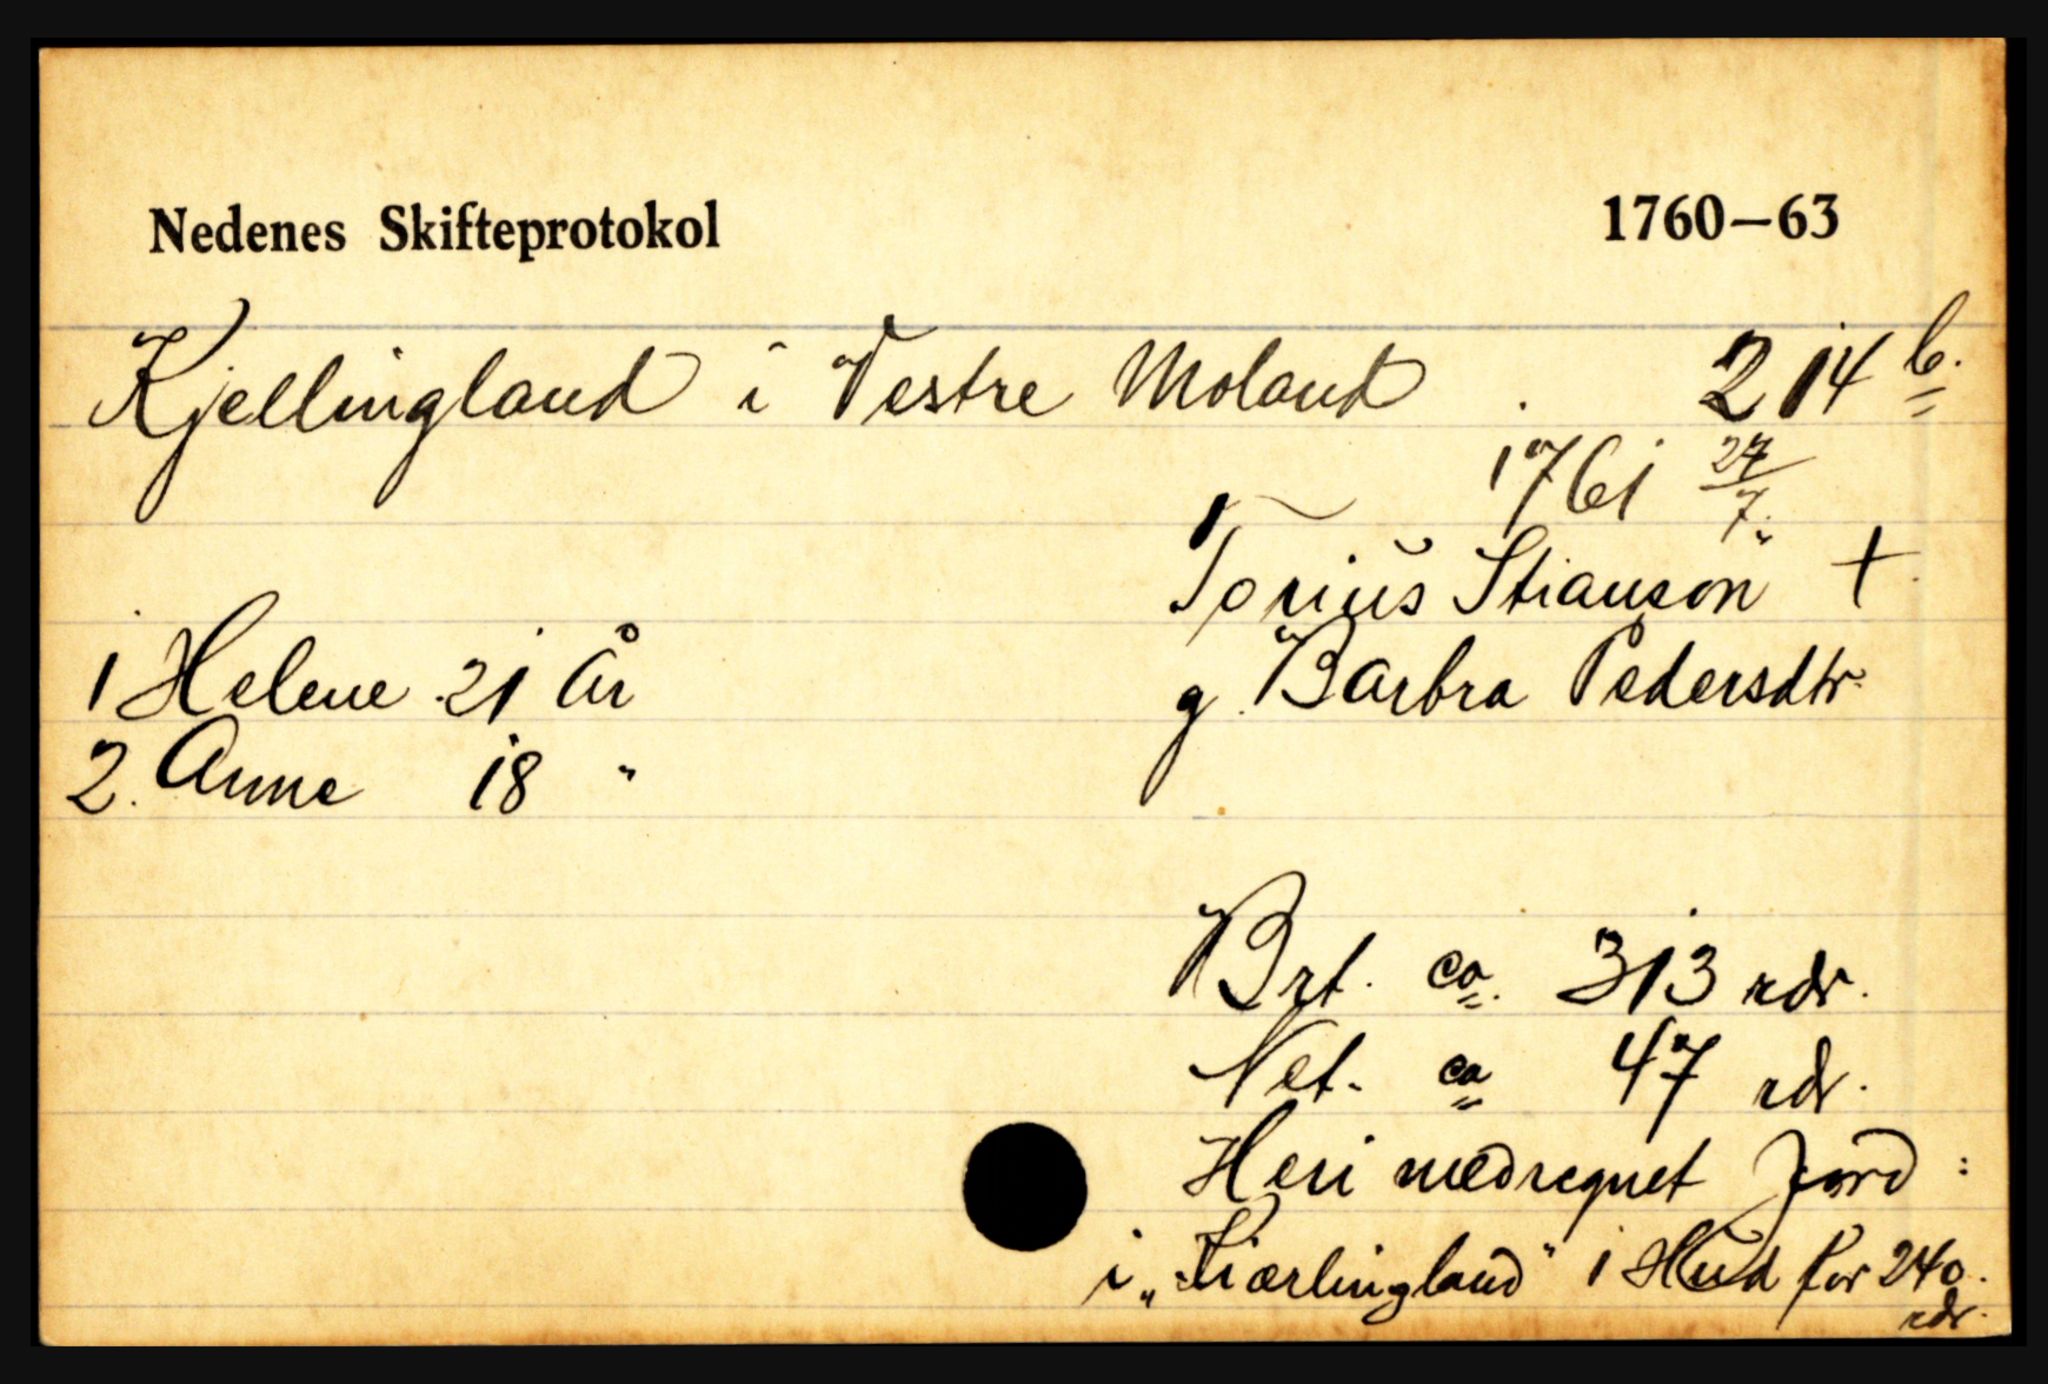 Nedenes Skifteprotokol 1760–63
Kjellingland i Vestre Moland . 214 b.
1761 27/7.
Torius Stianson +
1 Helene 21 År g. Barbra Pedersdtr.
2. Anne 18 "
Brt. ca. 313 rdr.
Net. ca 47 rdr.
Heri medregnet Jord :
i „Kiærlingland" 1 Hud for 240.
rdr.